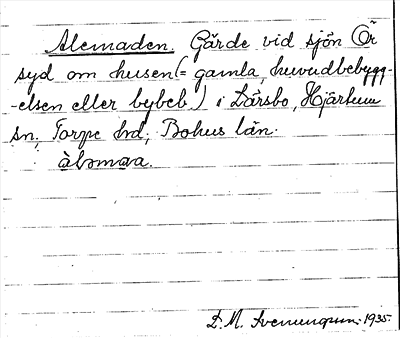 Alemaden. Gärde vid sjön Ör
syd om husen (= gamla, huvudbebygg-
-elsen eller bybeb.) i Lärsbo, Hjärtum
sn, Torpe hrd, Bohus län.
àləmava.
D. M. Svenungsson. 1935.